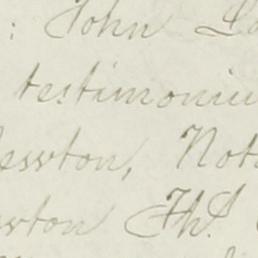 : John
testimoniu
ewton, Not
wton Th.